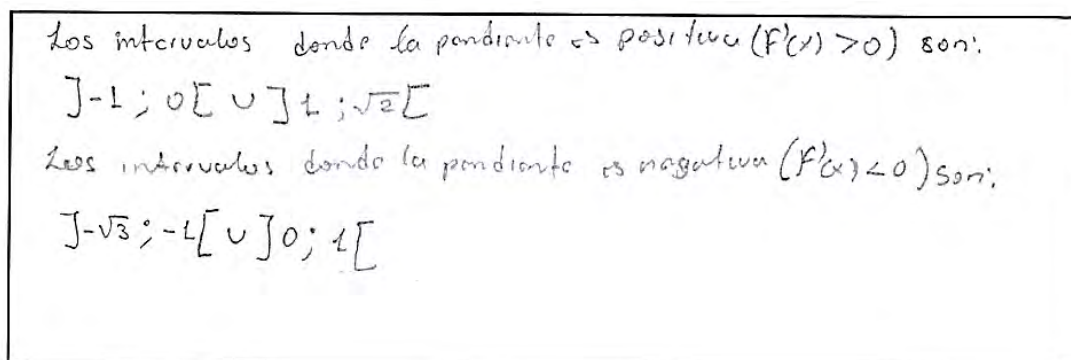 Los intervalos donde la pendiente es positiva (F'(x) >0) son:
]-1 ; 0[ ∪ ]1 ; √2[
Los intervalos donde la pendiente es negativa (F'(x) <0) son:
]-√3 ; -1[ ∪ ]0 ; 1[